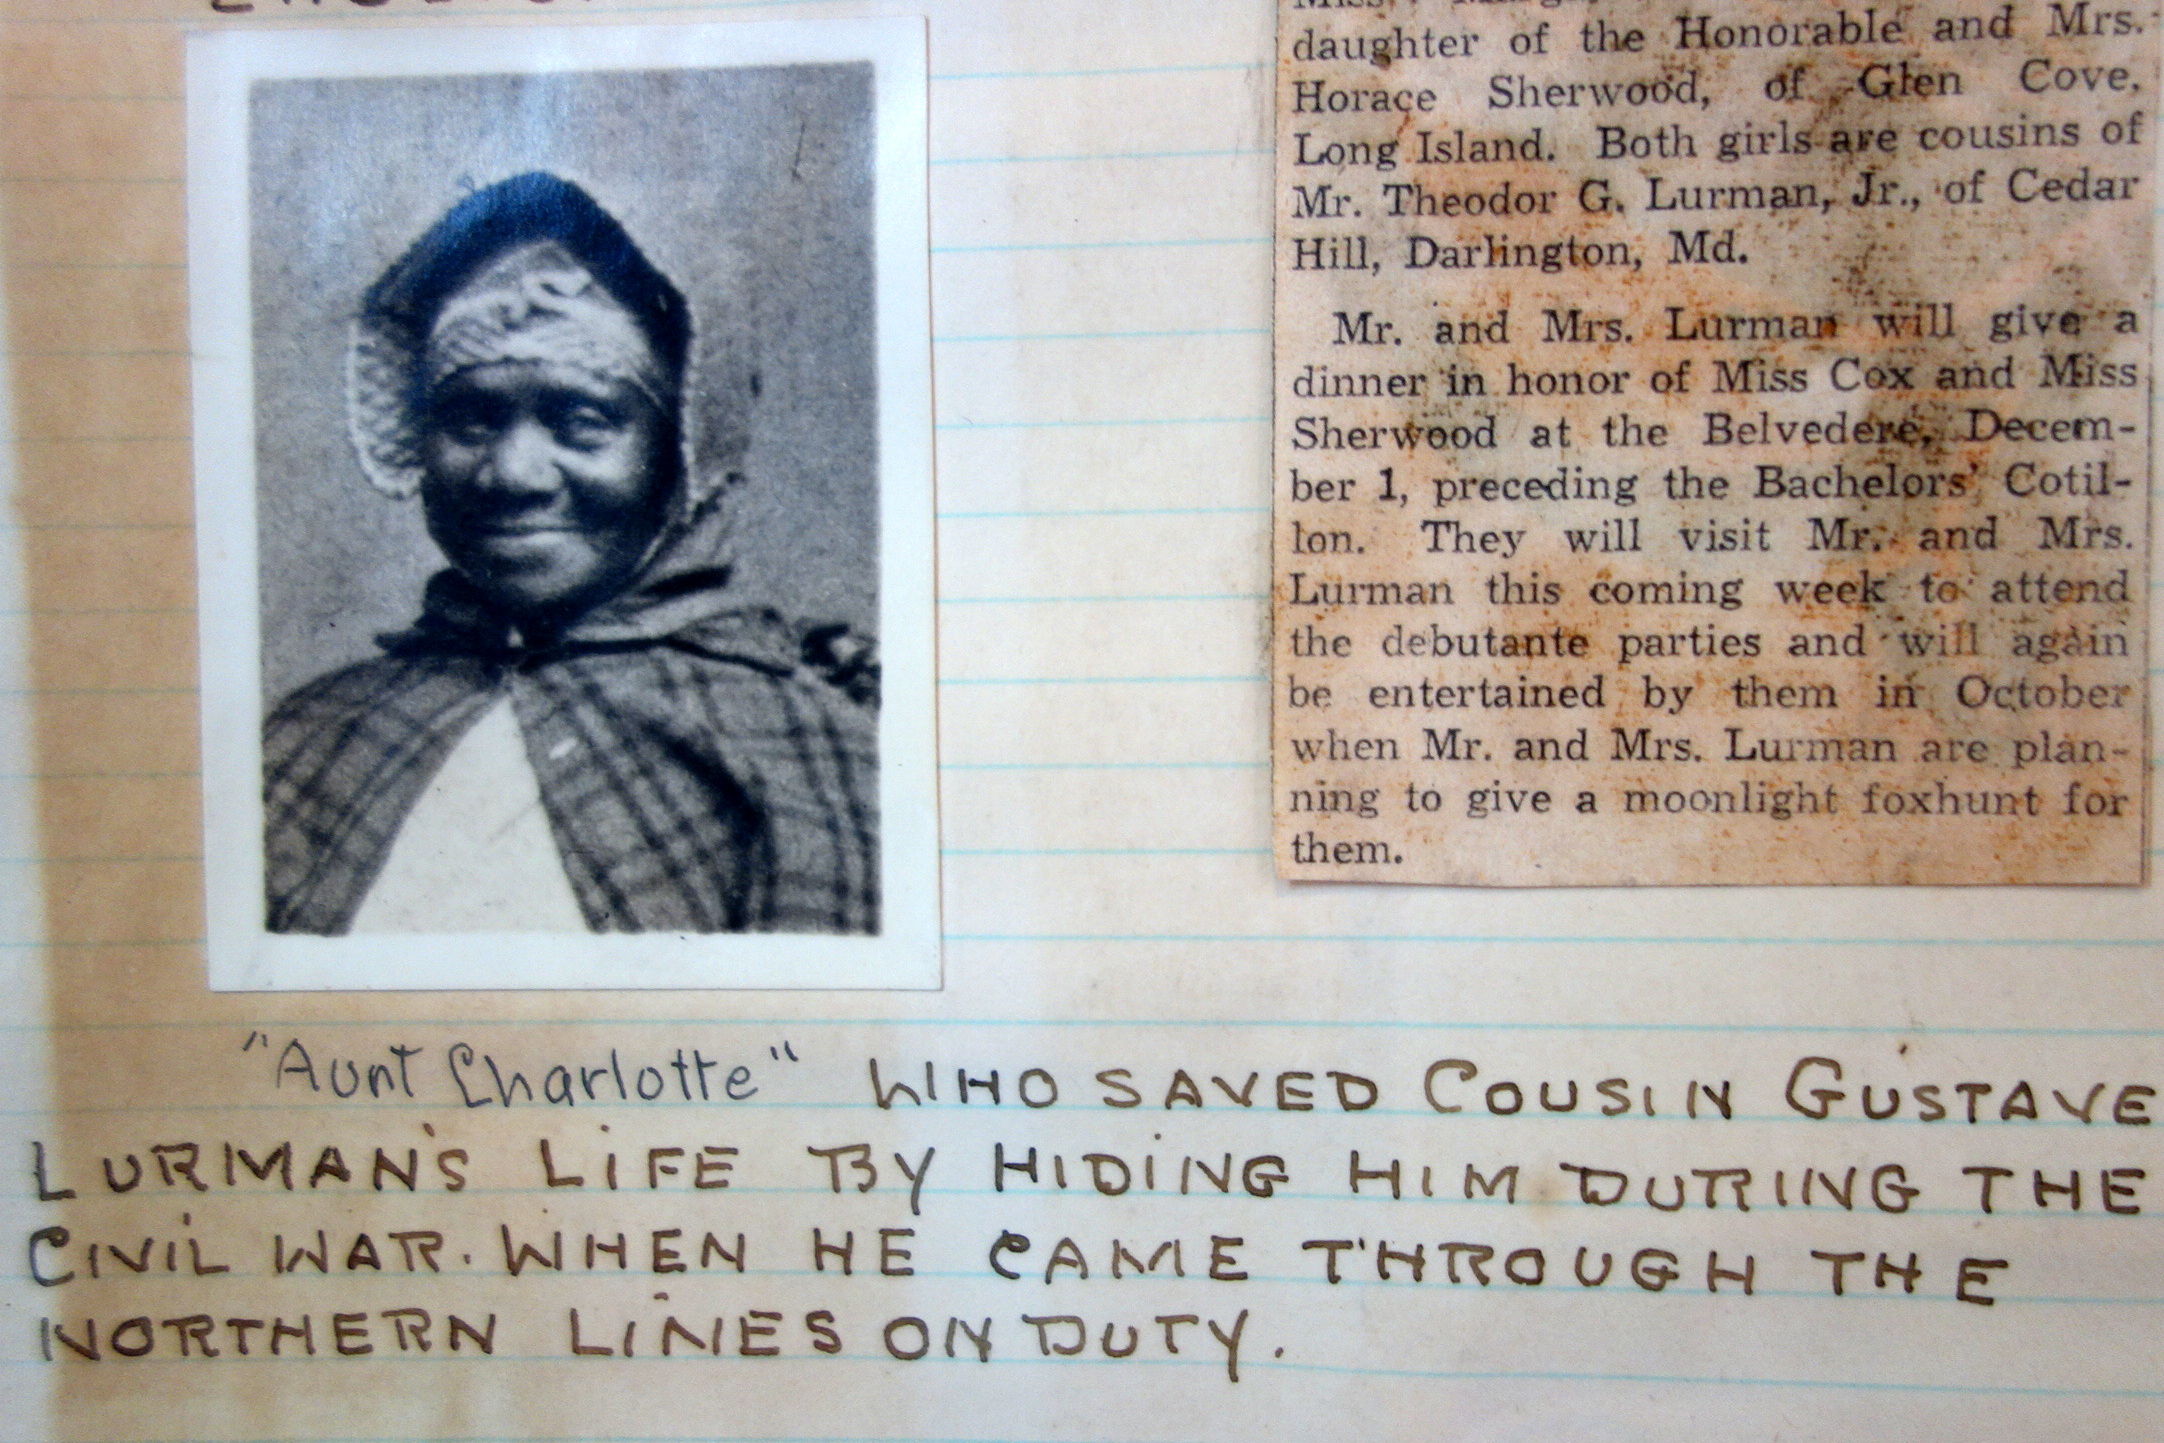 daughter of the Honorable and Mrs.
Horace Sherwood, of Glen Cove,
Long Island. Both girls are cousins of
Mr. Theodor G. Lurman, Jr., of Cedar
Hill, Darlington, Md.
Mr. and Mrs. Lurman will give a
dinner in honor of Miss Cox and Miss
Sherwood at the Belvedere, Decem-
ber 1, preceding the Bachelors' Cotil-
lon. They will visit Mr. and Mrs.
Lurman this coming week to attend
the debutante parties and will again
be entertained by them in October
when Mr. and Mrs. Lurman are plan-
ning to give a moonlight foxhunt for
them.
"Aunt Charlotte" WHO SAVED COUSIN GUSTAVE
LURMAN'S LIFE BY HIDING HIM DURING THE
CIVIL WAR. WHEN HE CAME THROUGH THE
NORTHERN LINES ON DUTY.